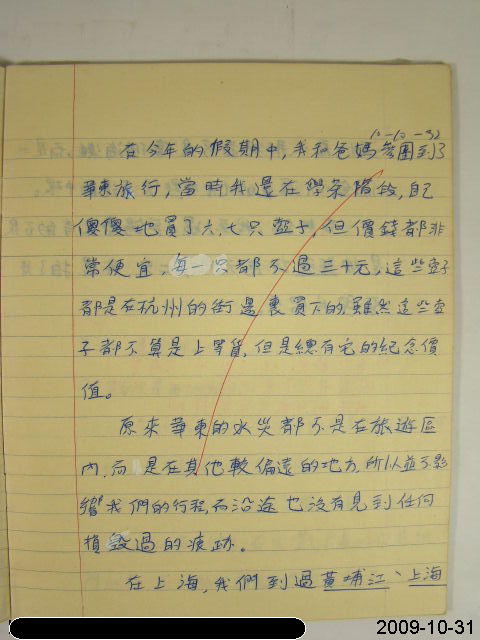 在今年的假期中,我和爸媽參團到了
華東旅行,當時我還在學茶階段,自己
傻傻地買了六、七只壺子,但價錢都非
常便宜,每一只都不過三十元,這些壺子
都是在杭州的街邊裏買下的,雖然這些壺
子都不算是上等貨,但是總有它的紀念價
值。
原來華東的水災都不是在旅遊區
內,而是在其他較偏遠的地方,所以並不影
響我們的行程,而沿途也沒有見到任何
損毀過的痕跡。
在上海,我們到過黃埔江、上海
2009-10-31